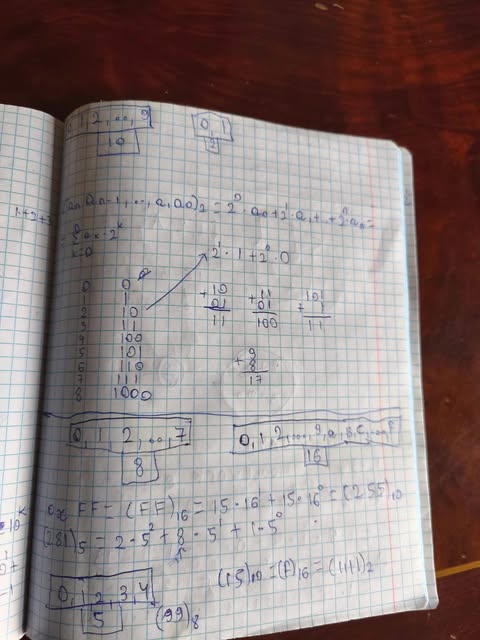 1, 2, ..., 9   0, 1
10   2
1+2+3
(an an-1, ..., a, a0)₂ = 2⁰·a0 + 2¹·a1 + ... + 2ⁿ·an =
= Σ ak·2ᵏ
k=0
2¹·1 + 2⁰·0
0   0
1   1
2   10
3   11
4   100
5   101
6   110
7   111
8   1000
+10   +11   +101
01   01
11   100   11
+9
8
17
0, 1, 2, ..., 7   0, 1, 2, ..., 9, a, B, C, ..., F
8   16
0x FF = (FF)₁₆ = 15·16¹ + 15·16⁰ = (255)₁₀
(281)₅ = 2·5² + 8·5¹ + 1·5⁰
(15)₁₀ = (F)₁₆ = (1111)₂
0, 1, 2, 3, 4
5   (99)₈